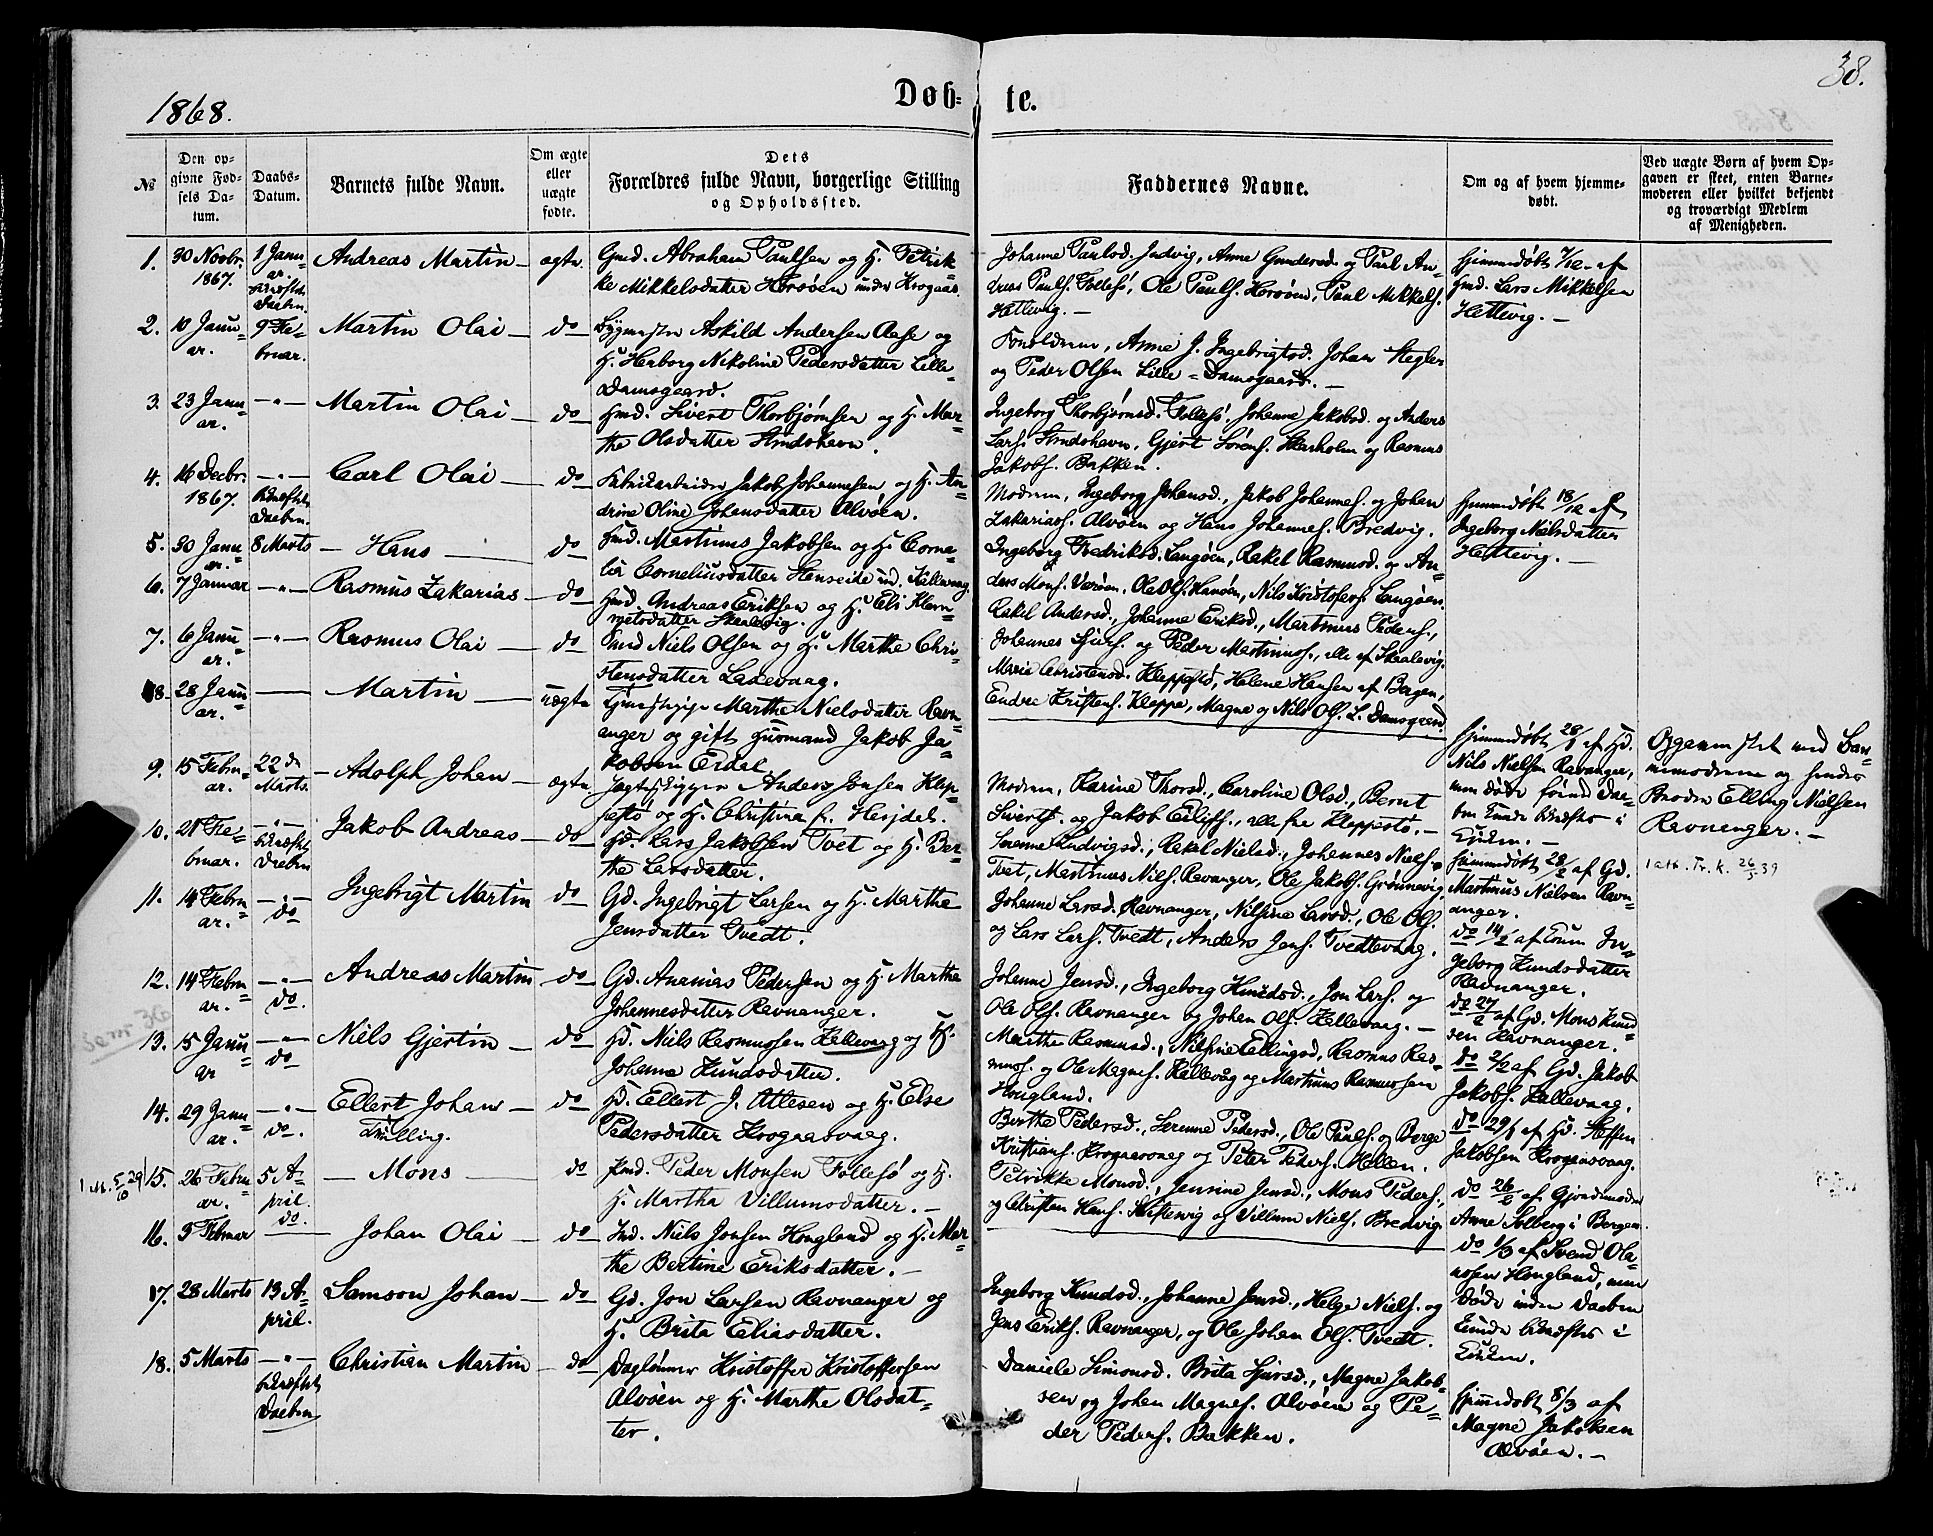 38.
1868.
Døb- te.
№
Den opgivne Fødsels Datum.
Daabs-Datum.
Barnets fulde Navn.
Om ægte eller uægte fødte.
Dets Forældres fulde Navn, borgerlige Stilling og Opholdssted.
Faddernes Navne.
Om og af hvem hjemmedøbt.
Ved uægte Børn af hvem Opgaven er skeet, enten Barnemoderen eller hvilket bekjendt og troværdigt Medlem af Menigheden.
1. 30 Novbr. 1867. 1 Januar. Andreas Martin — ægte.
Gmd. Abraham Paulsen og H. Petrikke Mikkelsdatter Horsøen under Krogaas.
Johanne Paulsd. Indvig, Anne Gundersd. og Paul Andreas Pauls. Follesø, Ole Pauls. Horsøen, Paul Mikkels. Hettevig. —
Hjemmedøbt 7/12 af Gmd. Lars Mikkelsen Hettevig. —
2. 10 Januar. 9 Februar. Martin Olai — do
Askild Andersen Aase og H. Herborg Nikoline Pedersdatter Lille-Damsgaard.
Forældrene, Anne J. Ingebrigtsd. Johan Kegler og Peder Olsen Lille-Damsgaard. —
3. 23 Januar. —"— Martin Olai — do
Hmd. Sivert Thorbjørnsen og H. Marthe Olsdatter
Ingeborg Thorbjørnsd. Follesø, Johanne Jakobsd. og Anders Lars. Gjert Sørens. Skarholm og Rasmus Jakobs. Bakken.
4. 16 Decbr. 1867. —"— bekræftet Daaben. Carl Olai — do
Fabrikarbeider Jakob Johannesen og H. Andrine Oline Johansdatter Alvøen.
Moderen, Ingeborg Johansd., Jakob Johannes. og Johan Zakarias. Alvøen og Hans Johannes. Bredvig.
Hjemmedøbt 18/12 af Ingeborg Nielsdatter Hettevig. —
5. 30 Januar. 8 Marts — Hans — do
Martinus Jakobsen og H. Cornelia Corneliusdatter Henseide
Ingeborg Fredriksd. Langøen, Rakel Rasmusd. og Anders Mons. Ole Ols. Hanøen, Nils Kristofers. Langøen.
6. 7 Januar —"— Rasmus Zakarias — do
Hmd. Andreas Eriksen og H. Eli Klemmetsdatter Skaalevig.
Rakel Andersd., Johanne Eriksd., Martinus Peders., Johannes og Peder Martinuss., alle af Skaalevig.
7. 6 Januar. —"— Rasmus Olai — do
Niels Olsen og H. Marthe Christensdatter
Maria Christensd. Kleppestø, Helene Hansen af Bergen, Endre Kristens. Kleppe, Magne og Nils Ols. L. Damsgaard.
8. 28 Januar. — Martin — uægte
Marthe Nielsdatter Ravnanger og gift Husmand Jakob Jakobsen Eidal.
Hjemmedøbt 28/1 af Gd. Nils Nielsen Ravnanger,
Opgaven skeet ved Barnemoderen og hendes Broder Elling Nielsen Ravnanger. —
1 att. Tr. k. 26/5 39
9. 15 Februar. 22de Marts. — Adolph Johan — ægte
Anders Jonsen Kleppestø og H. Christina f. Hesjedal.
Moderen, Karine Thorsd., Caroline Olsd., Bernt Siverts. og Jakob Eilifs., alle fra Kleppestø. —
10. 21 Februar. —"— bekræftet Daaben Jakob Andreas — do
Gd. Lars Jakobsen Tvet og H. Berthe Larsdatter.
Serenne Ludvigsd., Rakel Nielsd., Johannes Niels. Tvet, Martinus Niels. Ravnanger, Ole Jakobs. Grønnevig.
Hjemmedøbt 28/2 af Gd. Martinus Nielsen Ravnanger.
11. 14 Februar. —"— do Ingebrigt Martin do
Gd. Ingebrigt Larsen og H. Marthe Jensdatter Tvedt.
Johanne Larsd. Ravnanger, Nilsine Larsd., Ole Ols. og Lars Lars. Tvedt, Anders Jens. Tvedtevaag.
do 14/2 af Ingeborg Knudsdatter Ravnanger.
12. 14 Februar. —"— do. Andreas Martin — do
Gd. Ananias Pedersen og H. Marthe Johannesdatter Ravnanger.
Johanne Jensd., Ingeborg Knudsd., Jon Lars. og Ole Ols. Ravnanger og Johan Ols. Kallevaag. —
do 27/2 af Gd. Mons Knudsen Ravnanger.
Se nr 36
13. 15 Januar —"— do Niels Gjertin — do
Gd. Niels Rasmussen Kallevaag og H. Johanna Knudsdatter.
Marthe Rasmusd., Nilsine Ellingsd., Rasmus Rasmuss. og Ole Magnes. Kallevaag og Martinus Rasmussen Hougland.
do 2/2 af Gd. Jakob Jakobs. Kallevaag.
14. 29 Januar. —"— do. Ellert Johan — Tvilling. do
Gd. Ellert J. Atlesen og H. Else Pedersdatter Krogaasvaag.
Berthe Pedersd., Serenne Pedersd., Ole Pauls. og Berge Kristians. Krogaasvaag og Peter Peders. Hellen.
do 29/1 af Gd. Steffen Jakobsen Krogaasvaag.
1 att. 5/6 29
15. 26 Februar. 5 April. do. — Mons — do
Peder Monsen Follesø og H. H. Martha Villumsdatter. —
Petrikke Monsd., Jensine Jensd., Mons Peders., og Christen Hans. og Villum Niels. Bredvig.
do 26/2 af Gjordemoder Anne Solberg i Bergen.
16. 3 Februar — Johan Olai — do
Niels Jonsen Hougland og H. Marthe Bertine Eriksdatter. —
do 1/3 af Svend Olansen Hougland,
17. 28 Marts 13 April. Samson Johan — do
Gd. Jon Larsen Ravnanger og H. Brita Eliasdatter.
Ingeborg Knudsd., Johanne Jensd., Helge Niels. og Jens Eriks. Ravnanger, og Ole Johan Ols. Tvedt.
18. 5 Marts —"— bekræftet Daaben Christian Martin — do
Daglønner Kristoffer Kristoffersen Alvøen og H. Marthe Olsdatter.
Daniele Simonsd. Brita Sjursd., Magne Jakobsen og Johan Magnes. Alvøen og Peder Peders. Bakken.
Hjemmedøbt 8/3 af Magne Jakobsen Alvøen. —